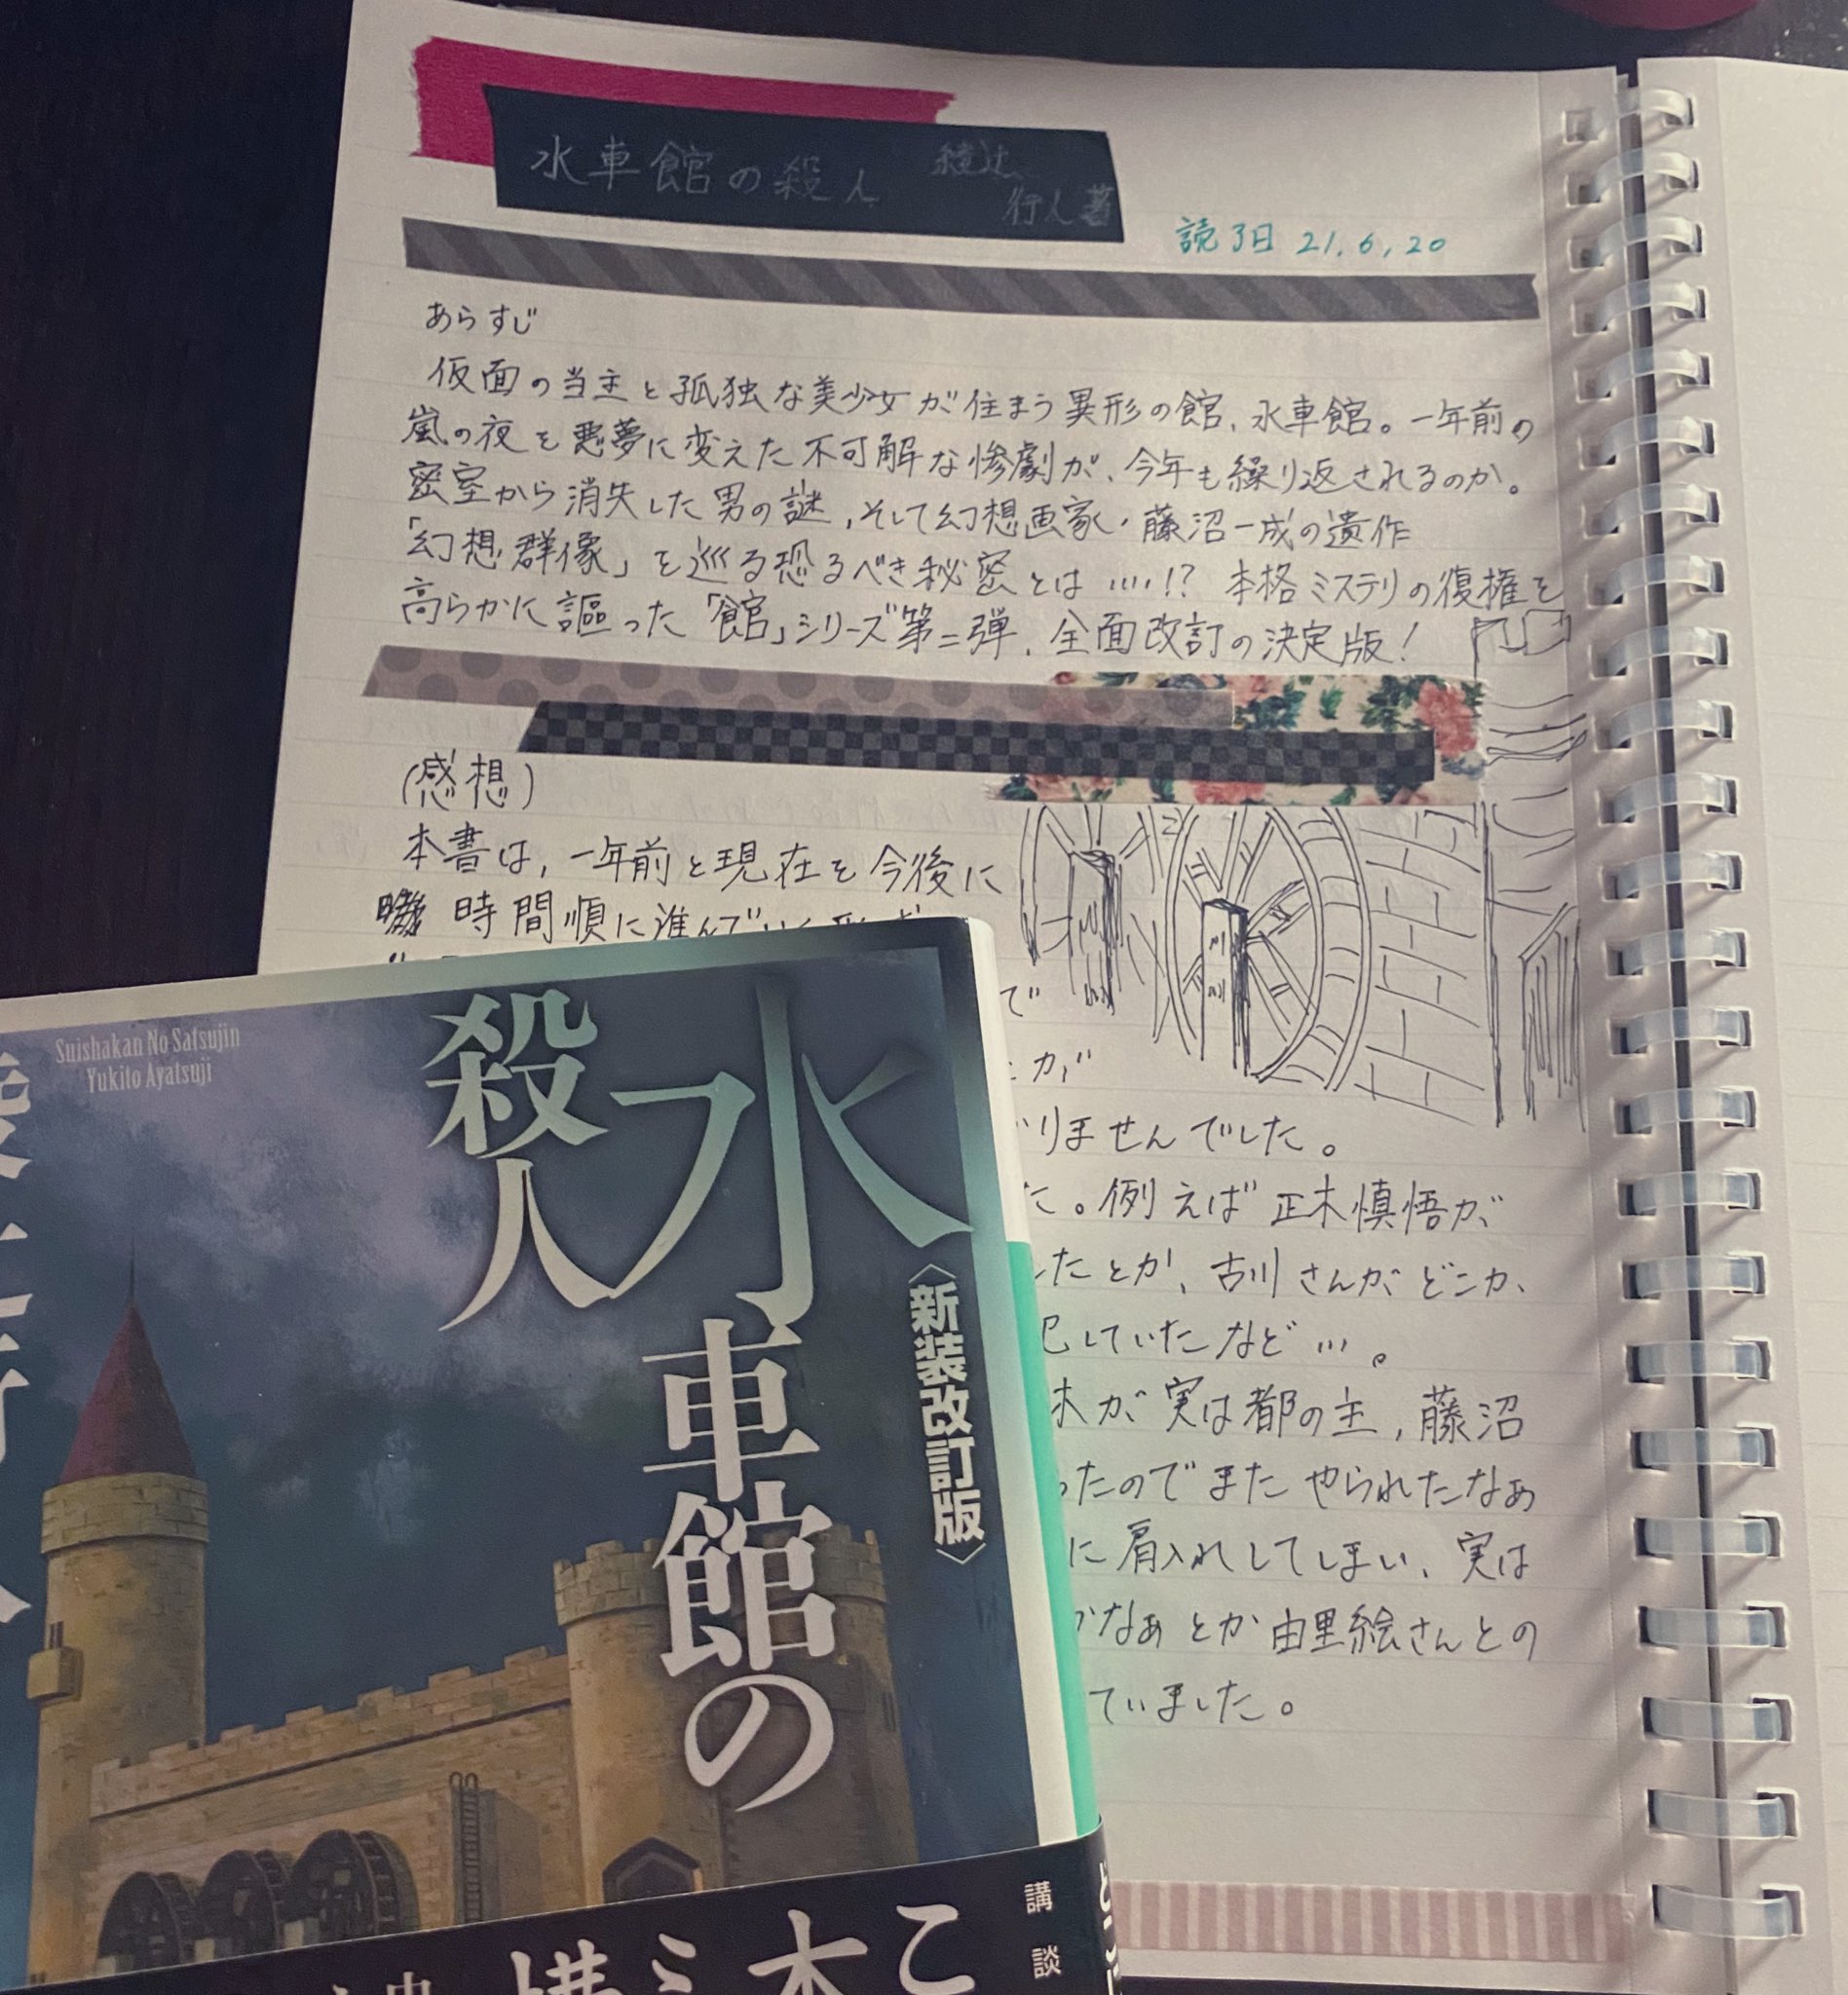 水車館の殺人 綾辻
行人著
読了日 21.6.20
あらすじ
仮面の当主と孤独な美少女が住まう異形の館、水車館。一年前の
嵐の夜を悪夢に変えた不可解な惨劇が、今年も繰り返されるのか。
密室から消失した男の謎、そして幻想画家・藤沼一成の遺作
「幻想群像」を巡る恐るべき秘密とは……!? 本格ミステリの復権を
高らかに謳った「館」シリーズ第二弾、全面改訂の決定版!
(感想)
本書は、一年前と現在を今後に
時間順に進んでいく形
で
が
りませんでした。
た。例えば正木慎悟が
したとか、古川さんがどこか、
していたなど…。
木が実は都の主,藤沼
ったのでまたやられたなぁ
に肩入れしてしまい、実は
かなぁとか由里絵さんとの
ていました。
Suishakan No Satsujin
Yukito Ayatsuji
水車館の
殺人
〈新装改訂版〉
講談